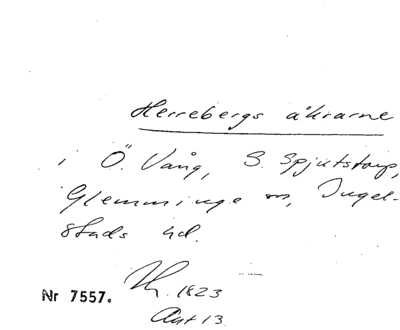 Herrebergs åkrarne
i Ö. Vång, S. Spjutstorp,
Glemminge sn, Ingel-
stads hd.
Nr 7557. 1823
Akt 13.